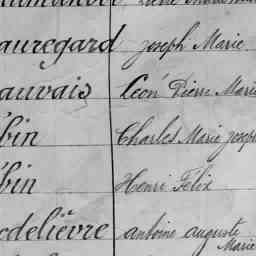 auregard Joseph Marie
auvais Léon Pierre Marie
bin Charles Marie Joseph
bin Henri Félix
edelièvre antoine auguste
Marie